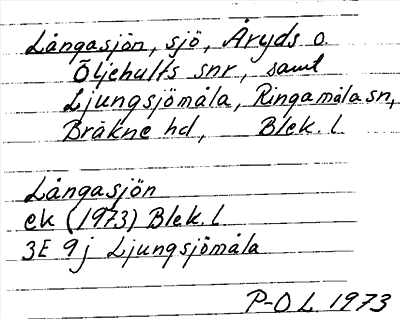 Långasjön, sjö, Åryds o.
Öljehults snr, samt
Ljungsjömåla, Ringamåla sn,
Bräkne hd, Blek. l
Långasjön
ek (1973) Blek. l
3E 9j Ljungsjömåla
P-O L 1973